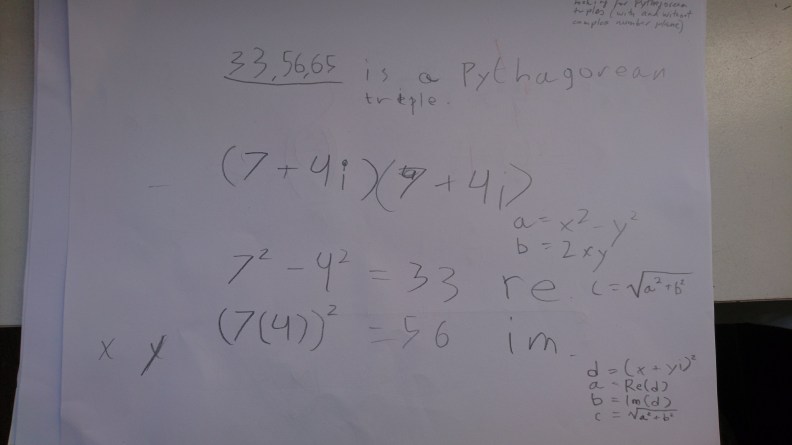 making for Pythagorean
triples (with and without
complex number plane)
33,56,65 is a Pythagorean
triple.
(7+4i)(7+4i)
a = x² - y²
b = 2xy
7² - 4² = 33 re.
c = √a²+b²
(7(4))² = 56 im.
x y
d = (x + yi)²
a = Re(d)
b = Im(d)
c = √a²+b²